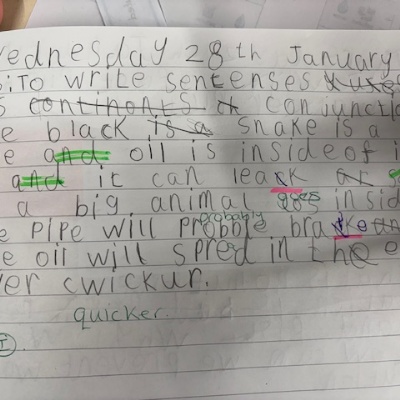 Wednesday 28th January
: To write sentences
continents conjunctio
e black is a snake is a
e and oil is inside of i
and it can leack or
a big animal goes insid
probably
e pipe will probble brake an
e oil will spred in the e
er cwickur.
quicker.